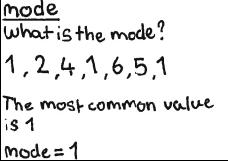 mode
What is the mode?
1, 2, 4, 1, 6, 5, 1
The most common value
is 1
mode = 1